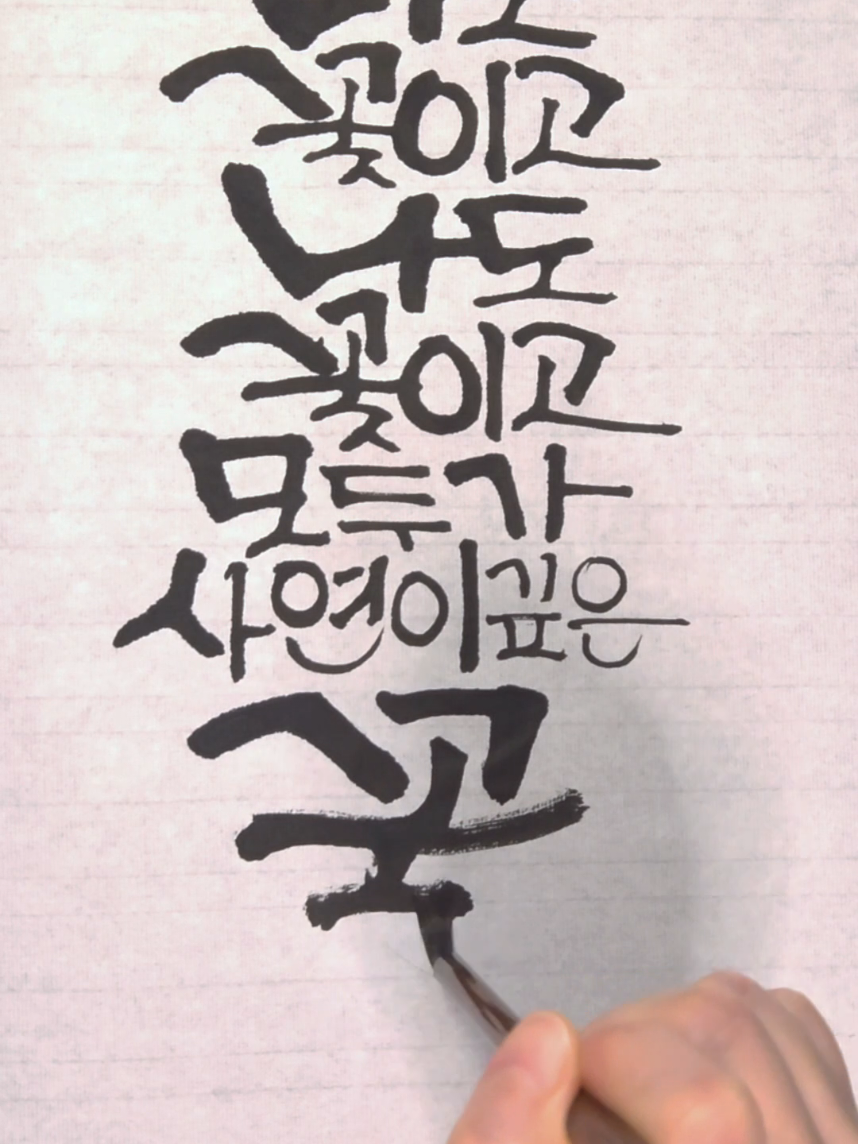 꽃이고
나도
꽃이고
모두가
사연이 깊은